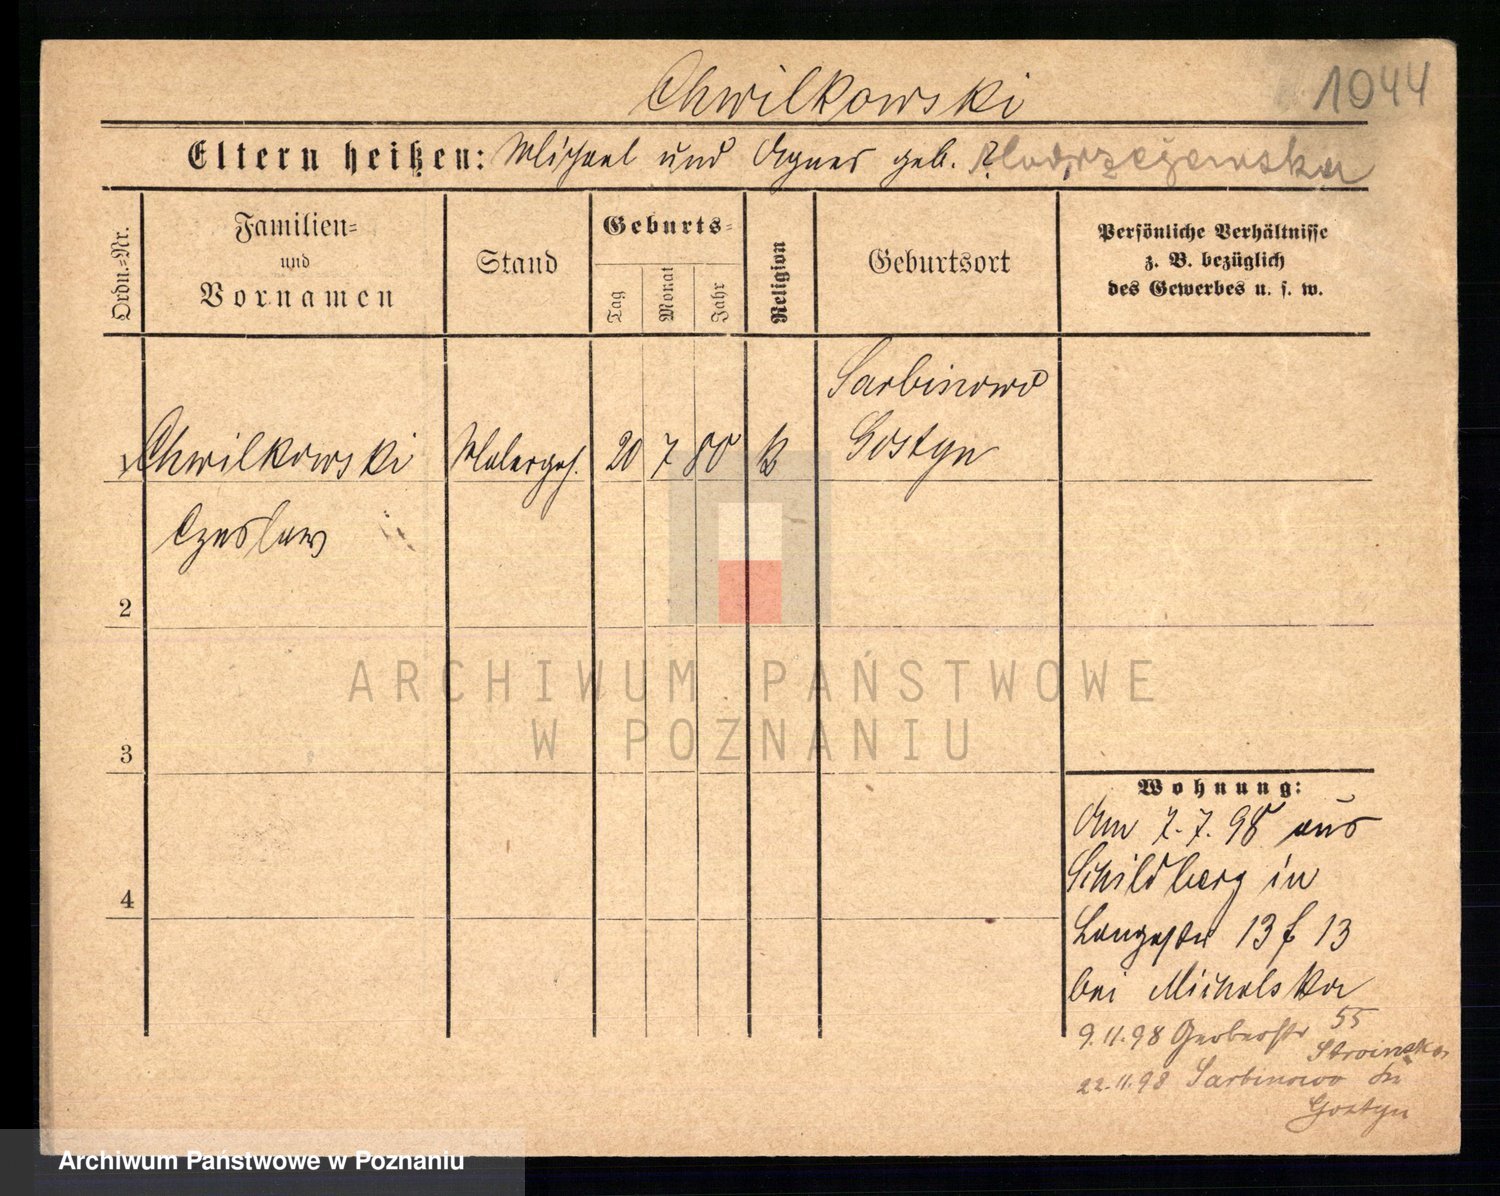 Chwilkowski
1944
Eltern heißen: Michael und Agnes geb. ?
Ordn.=Nr.
Familien=
und
Vornamen
Stand
Geburts=
Tag
Monat
Jahr
Religion
Geburtsort
Persönliche Verhältnisse
z. B. bezüglich
des Gewerbes u. s. w.
Sarbinowo
1 Chwilkowski Malergeh. 20 7 80 K Gostyn
Czeslaw
2
3
4
ARCHIWUM PAŃSTWOWE
W POZNANIU
Wohnung:
Am 7.7.98 aus
Schildberg in
Langestr 13 f 13
bei Michalska
9.11.98 Gerberstr 55
Stroinska
22.11.98 Sarbinowo Kr
Gostyn
Archiwum Państwowe w Poznaniu